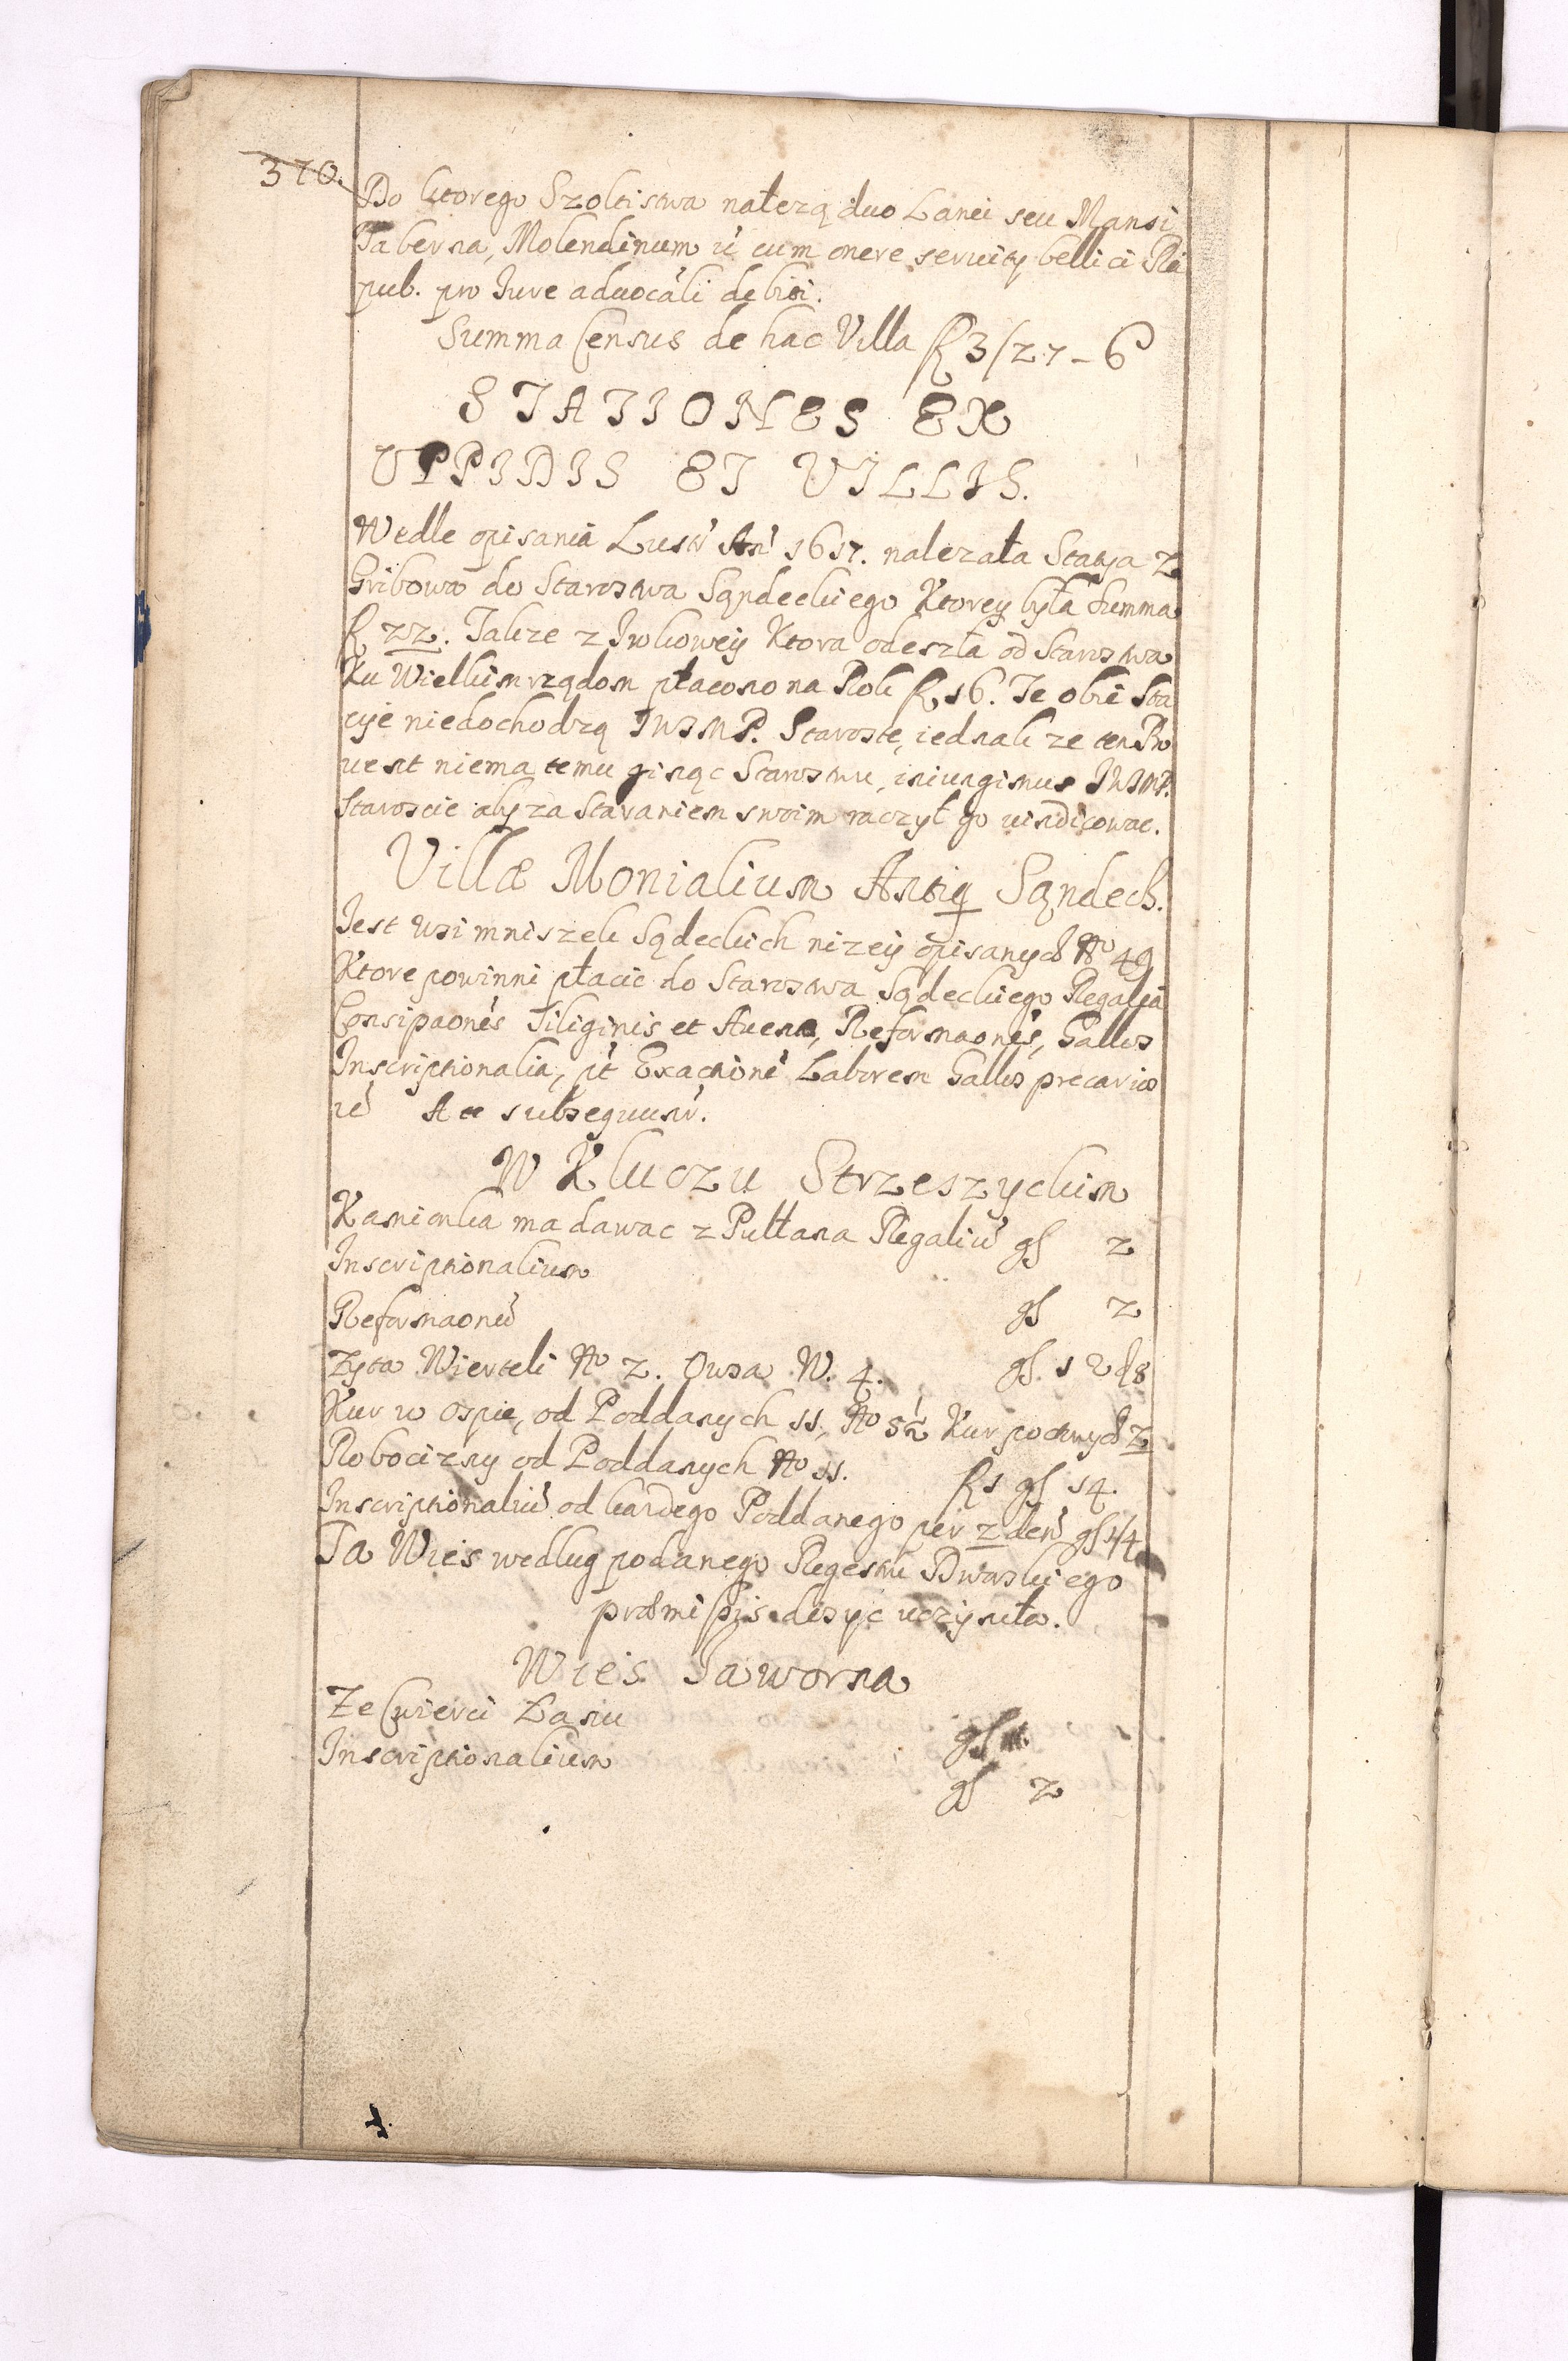 370.
Do ktorego Szoltistwa nałezą duo Lanei seu Mansi
Taberna, Molendinum ũ cum onere seruity bellici Rei
pub. pro Jure aduocali debiti.
Summa Census de hac Villa R 3/27-6
STATIONES EX
OPPIDIS ET VILLIS.
Wedle opisania Lustr̃ An̄ 1617. nalezała Stacya z
Gribowa do Starostwa Sądeckiego Ktorey była Summa
R 22. Takze z Jwkowey Ktora odeszła od Starostwa
Ku Wielkim rządom płacono na Rok R 16. Te obie Sta
cyje niedochodzą JWJMP. Staroste, iednak ze ten Pro
uent niema temu ginąc Starostwu, iniungimus JWJMP.
Staroscie aby za Staraniem swoim raczył go uindicowac.
Villæ Monialium Antiq Sąndech.
Jest wsi mniszek Sądeckich nizey opisanych No 49
Ktore powinni płacic do Starostwa Sądeckiego Regalia
Consipaones Siliginis et Auenæ, Reformaones, Gallos
Inscriptionalia, pt Exactione Laborem Gallos precarios
ũ A ee subsequunr̃.
W Kluczu Strzeszyckim
Kamionka ma dawac z Pułłana Regaliũ gſ 2
Inscriptionalium gſ 2
Reformaonũ gſ. 12 d 8
Zyta Wierteli No 2. Owsa W. 4.
Kur w ospie, od Poddanych 11, No 5½ Kur poctwych 2
Robocizny od Poddanych No 11. R1 gſ 14.
Inscriptionaliũ od kazdego Poddanego per 2 den̄ gſ 1/4
Ta Wies wedlug podanego Regestru Dworskiego
præmissis dosyc uczyniła.
Wies Jaworna
Ze Cwierci Łanu gſ
Inscriptionalium gſ 2